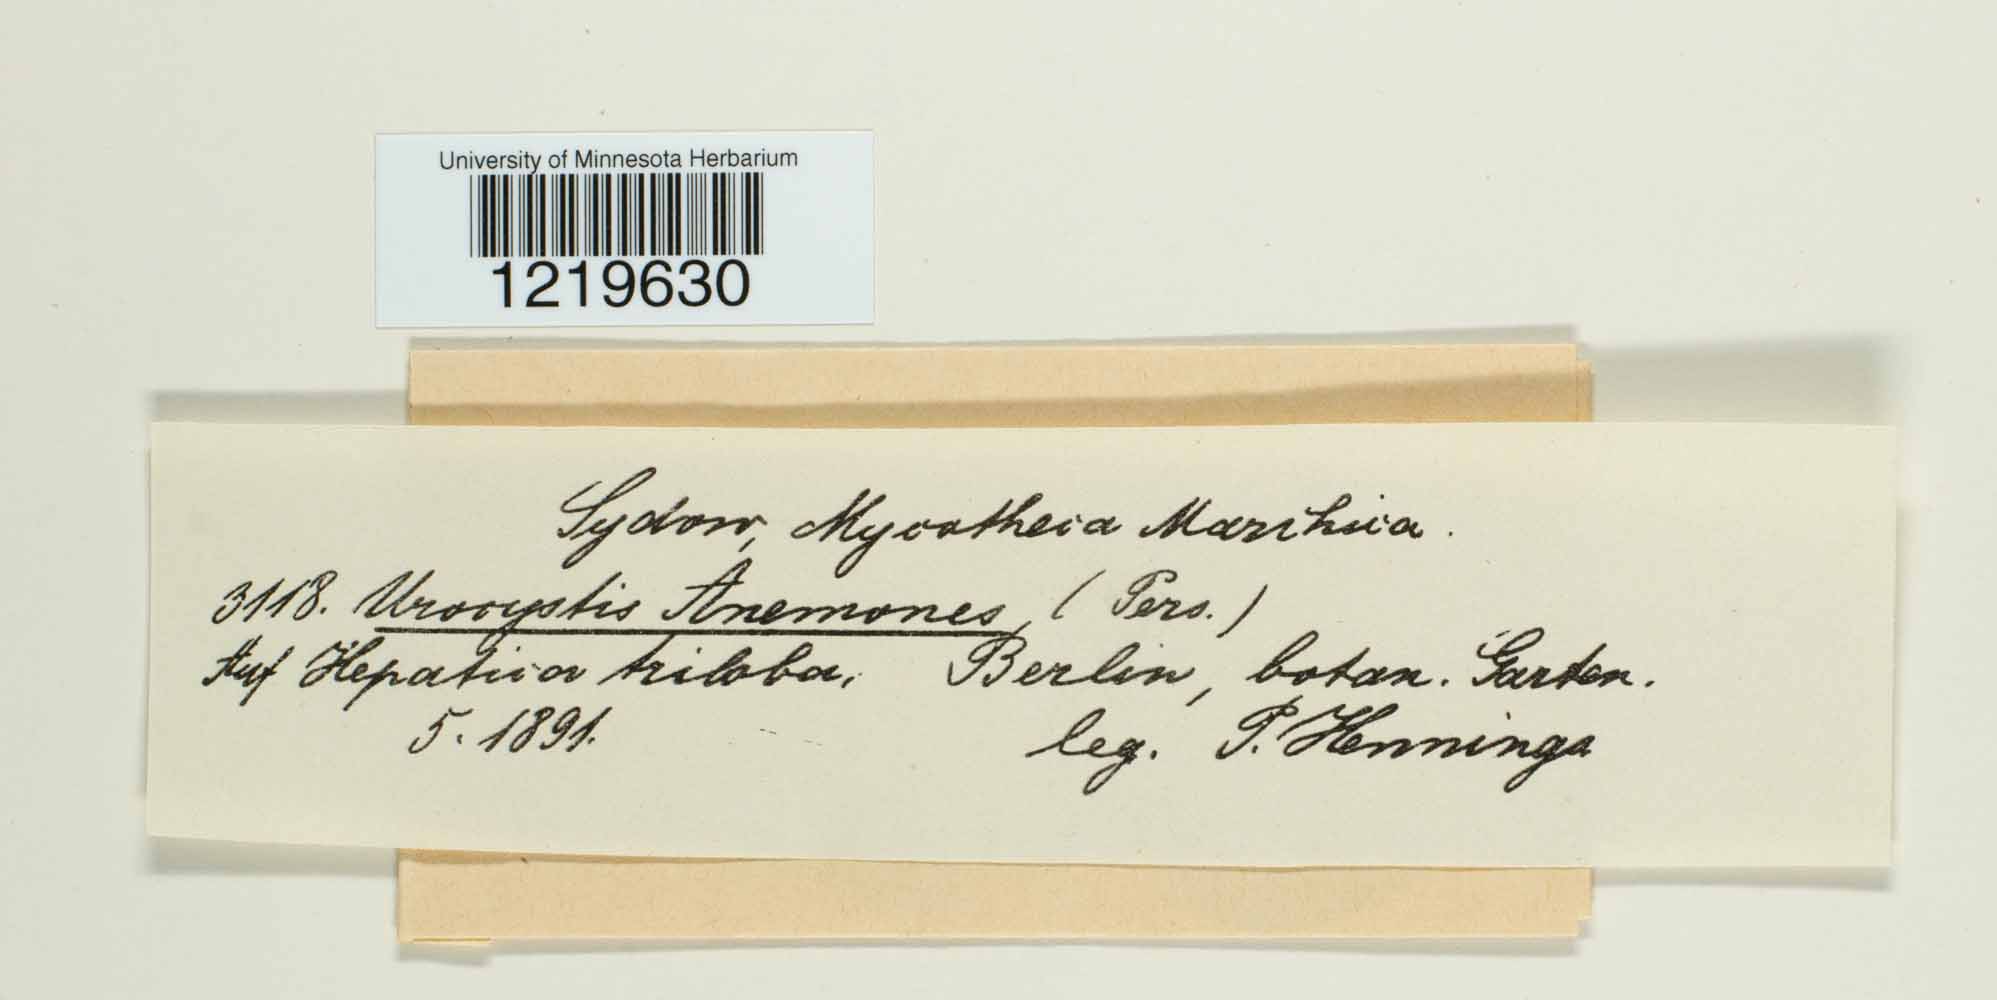 University of Minnesota Herbarium
1219630
Sydow, Mycotheca Marchica.
3118. Urocystis Anemones, (Pers.)
Auf Hepatica triloba. Berlin, botan. Garten.
5. 1891. leg. P. Hennings